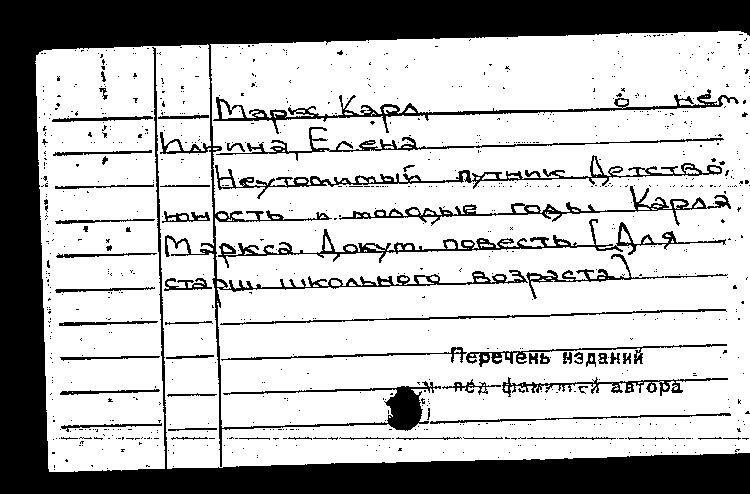 Маркс, Карл, о нем.
Ильина, Елена
Неутомимый путник Детство,
юность и молодые годы Карла
Маркса. Докум. повесть. [Для
старш. школьного возраста].
Перечень изданий
под фамилией автора